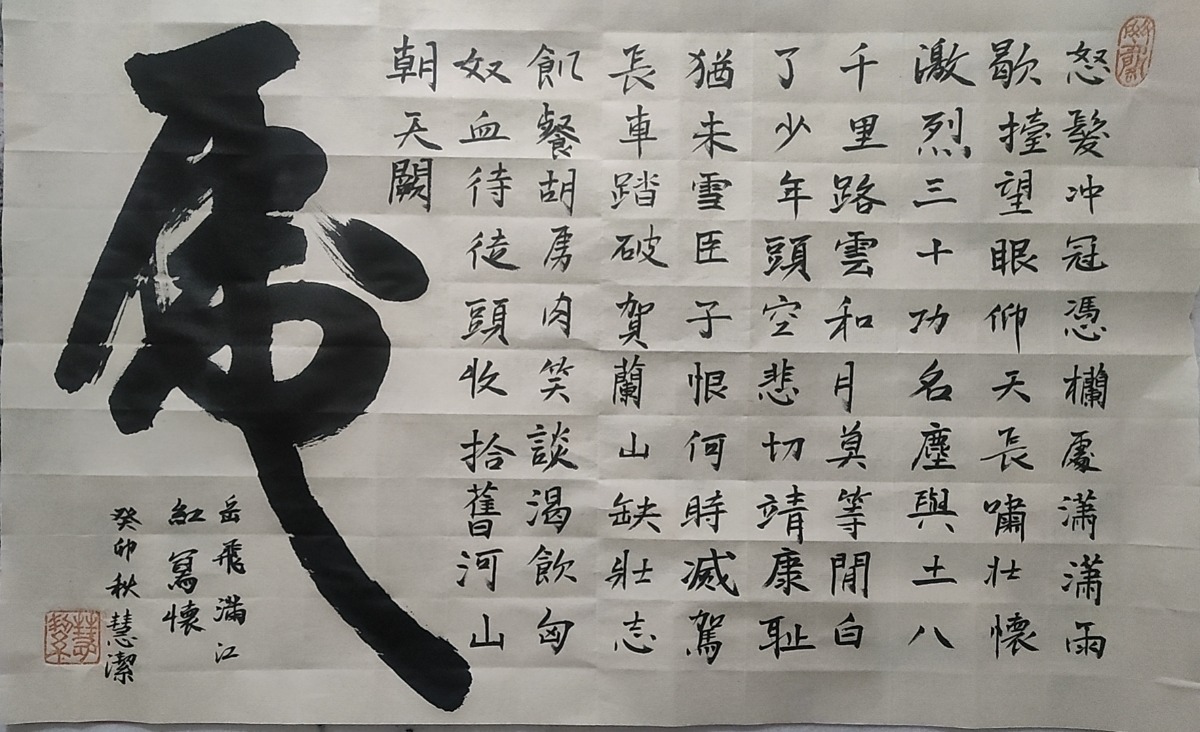 怒髮冲冠憑欄處潇潇雨
歇擡望眼仰天長嘯壯懷
激烈三十功名塵與土八
千里路雲和月莫等閒白
了少年頭空悲切靖康耻
猶未雪臣子恨何時滅駕
長車踏破賀蘭山缺壯志
飢餐胡虜肉笑談渴飲匈
奴血待徒頭收拾舊河山
朝天闕
虎
岳飛滿江
紅寫懷
癸卯秋慧潔